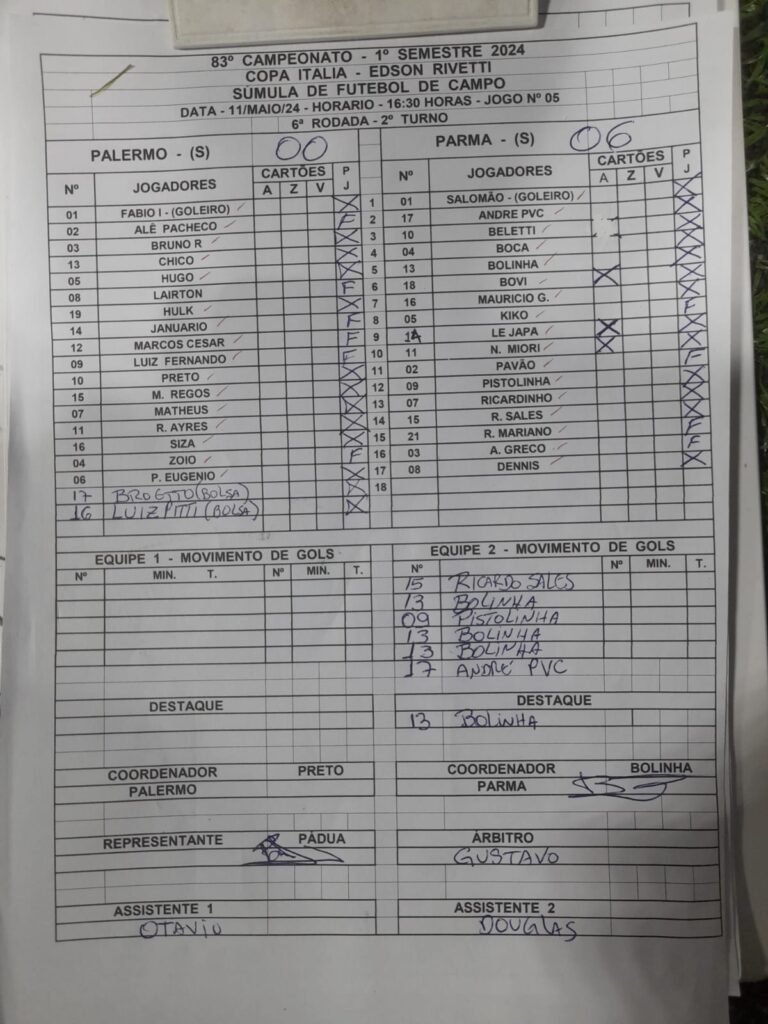 83º CAMPEONATO - 1º SEMESTRE 2024
COPA ITALIA - EDSON RIVETTI
SÚMULA DE FUTEBOL DE CAMPO
DATA - 11/MAIO/24 - HORARIO - 16:30 HORAS - JOGO Nº 05
6ª RODADA - 2º TURNO
PALERMO - (S) 00
Nº JOGADORES CARTÕES A Z V P J
01 FABIO I - (GOLEIRO) X
02 ALÊ PACHECO F
03 BRUNO R X
13 CHICO X
05 HUGO X
08 LAIRTON F
19 HULK X
14 JANUARIO F
12 MARCOS CESAR F
09 LUIZ FERNANDO F
10 PRETO X
15 M. REGOS X
07 MATHEUS X
11 R. AYRES X
16 SIZA X
04 ZOIO F
06 P. EUGENIO X
17 BROETTO (BOLSA) X
16 LUIZ PITTI (BOLSA) X
1
2
3
4
5
6
7
8
9
10
11
12
13
14
15
16
17
18
PARMA - (S) 06
Nº JOGADORES CARTÕES A Z V P J
01 SALOMÃO - (GOLEIRO)
17 ANDRE PVC
10 BELETTI
04 BOCA
13 BOLINHA
18 BOVI X
16 MAURICIO G.
05 KIKO
LE JAPA X
11 N. MIORI X
02 PAVÃO
09 PISTOLINHA
07 RICARDINHO
15 R. SALES
21 R. MARIANO
03 A. GRECO
08 DENNIS
EQUIPE 1 - MOVIMENTO DE GOLS
Nº MIN. T. Nº MIN. T.
EQUIPE 2 - MOVIMENTO DE GOLS
Nº Nº MIN. T.
15 RICARDO SALES
13 BOLINHA
09 PISTOLINHA
13 BOLINHA
13 BOLINHA
17 ANDRÉ PVC
DESTAQUE
DESTAQUE
13 BOLINHA
COORDENADOR PRETO
PALERMO
COORDENADOR BOLINHA
PARMA
REPRESENTANTE PÁDUA
ÁRBITRO
GUSTAVO
ASSISTENTE 1
OTAVIO
ASSISTENTE 2
DOUGLAS